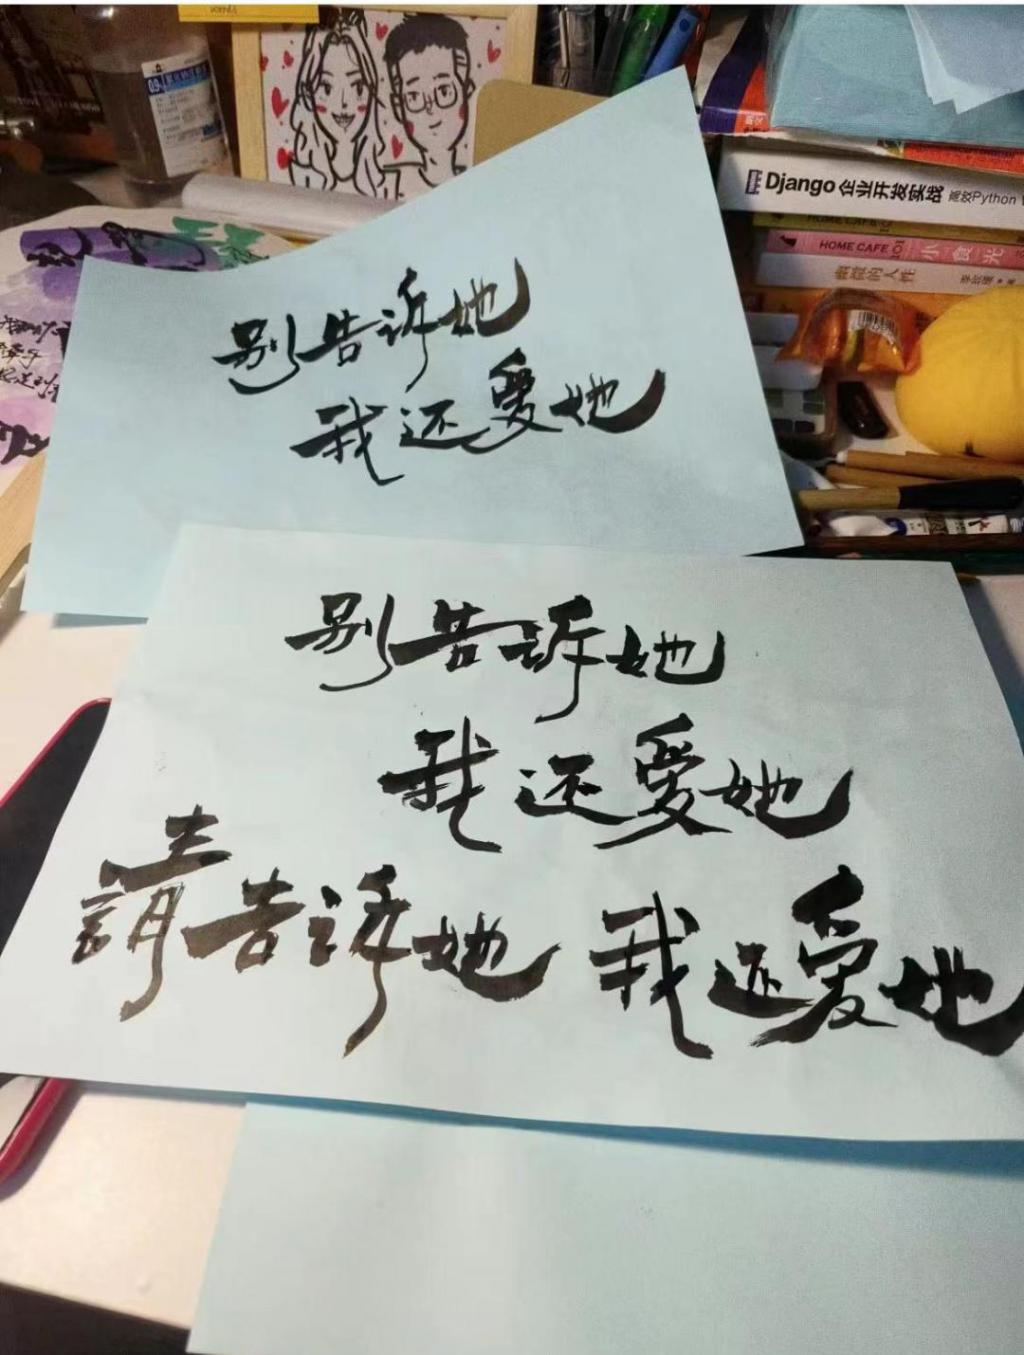 Django 企业开发实战 高效Python
HOME CAFE
小食光
幽微的人性
别告诉她
我还爱她
别告诉她
我还爱她
請告诉她 我还爱她